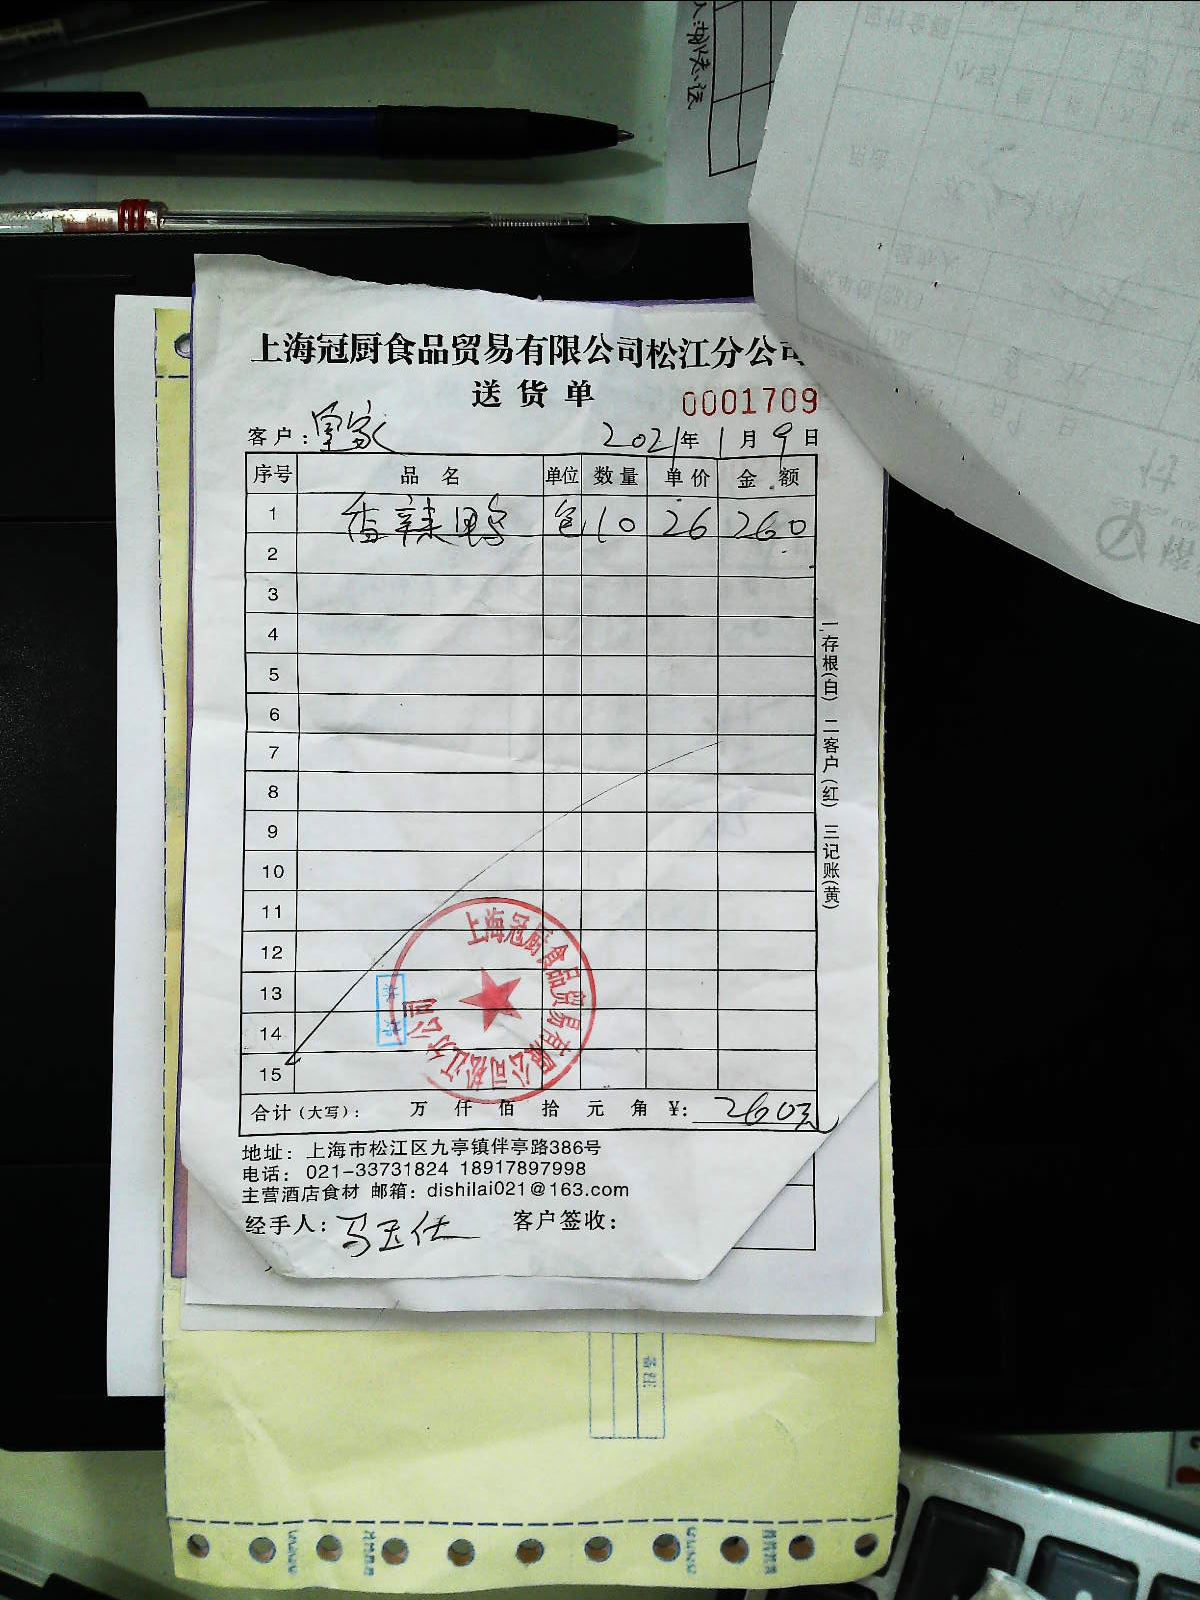 上海冠厨食品贸易有限公司松江分公司
送货单
0001709
客户:皇家 2021年1月9日
序号 品名 单位 数量 单价 金额
1 香辣鸭 包 10 26 260
2
3
4
5
6
7
8
9
10
11
12
13
14
15
合计(大写): 万 仟 佰 拾 元 角 ¥: 260元
地址: 上海市松江区九亭镇伴亭路386号
电话: 021-33731824 18917897998
主营酒店食材 邮箱: dishilai021@163.com
经手人: 马玉仕 客户签收:
一存根(白) 二客户(红) 三记账(黄)
上海冠厨食品贸易有限公司松江分公司
备注: